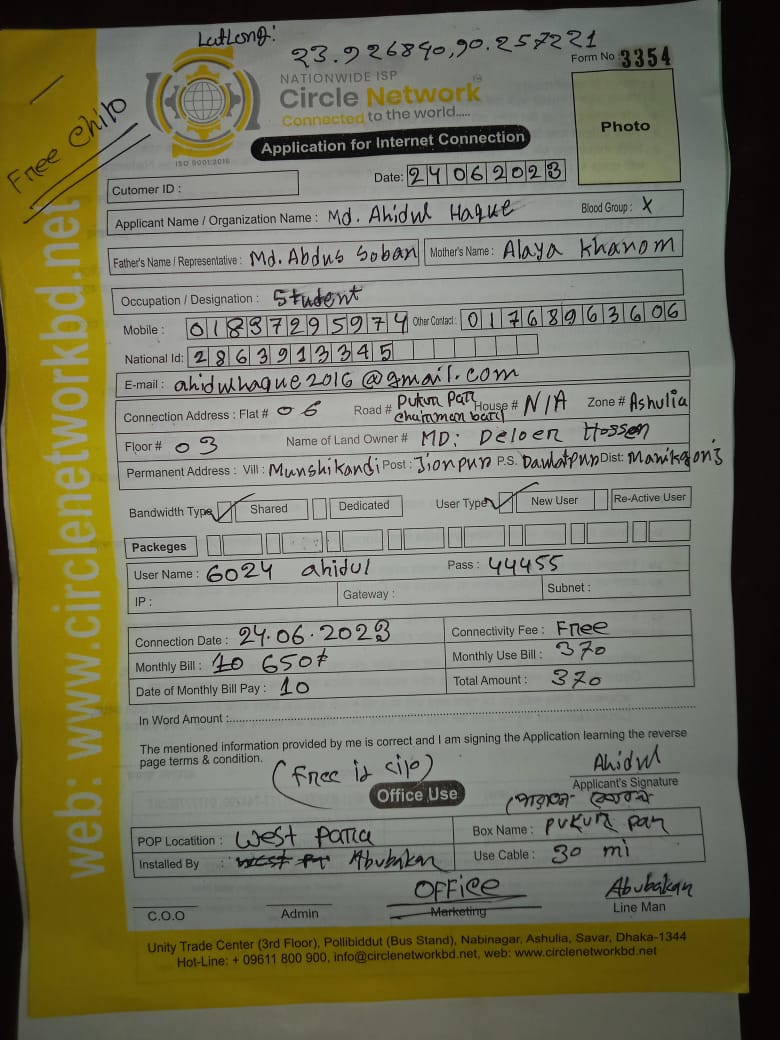 LatLong:
23.926840,90.257221
Form No : 3354
Free Chilo
NATIONWIDE ISP
Circle Network
Connected to the world.....
ISO 9001:2015
Application for Internet Connection
Photo
Date: 24062023
Cutomer ID :
Applicant Name / Organization Name : Md. Ahidul Haque Blood Group : X
Father's Name / Representative : Md. Abdus Soban Mother's Name : Alaya Khanom
Occupation / Designation : Student
Mobile : 01837295974 Other Contact : 01768963606
National Id: 2863913345
E-mail : ahidulhaque2016@gmail.com
Connection Address : Flat # 06 Road # Pukur Par chairman bari House # N/A Zone # Ashulia
Floor # 03 Name of Land Owner # MD: Deloer Hossen
Permanent Address : Vill : Munshikandi Post : Jionpur P.S. Daulatpur Dist: Manikgonj
Bandwidth Type Shared Dedicated User Type New User Re-Active User
Packeges
User Name : 6024 ahidul Pass : 44455
IP : Gateway : Subnet :
Connection Date : 24.06.2023 Connectivity Fee : Free
Monthly Bill : 10 650/= Monthly Use Bill : 370
Date of Monthly Bill Pay : 10 Total Amount : 370
In Word Amount :
The mentioned information provided by me is correct and I am signing the Application learning the reverse
page terms & condition.
(Free id cilo)
Ahidul
Applicant's Signature
Office Use
POP Locatition : West Para Box Name : Pukur Par
Installed By : Abubakar Use Cable : 30 mi
OFFICE Abubakar
C.O.O Admin Marketing Line Man
Unity Trade Center (3rd Floor), Pollibiddut (Bus Stand), Nabinagar, Ashulia, Savar, Dhaka-1344
Hot-Line: + 09611 800 900, info@circlenetworkbd.net, web: www.circlenetworkbd.net
web: www.circlenetworkbd.net